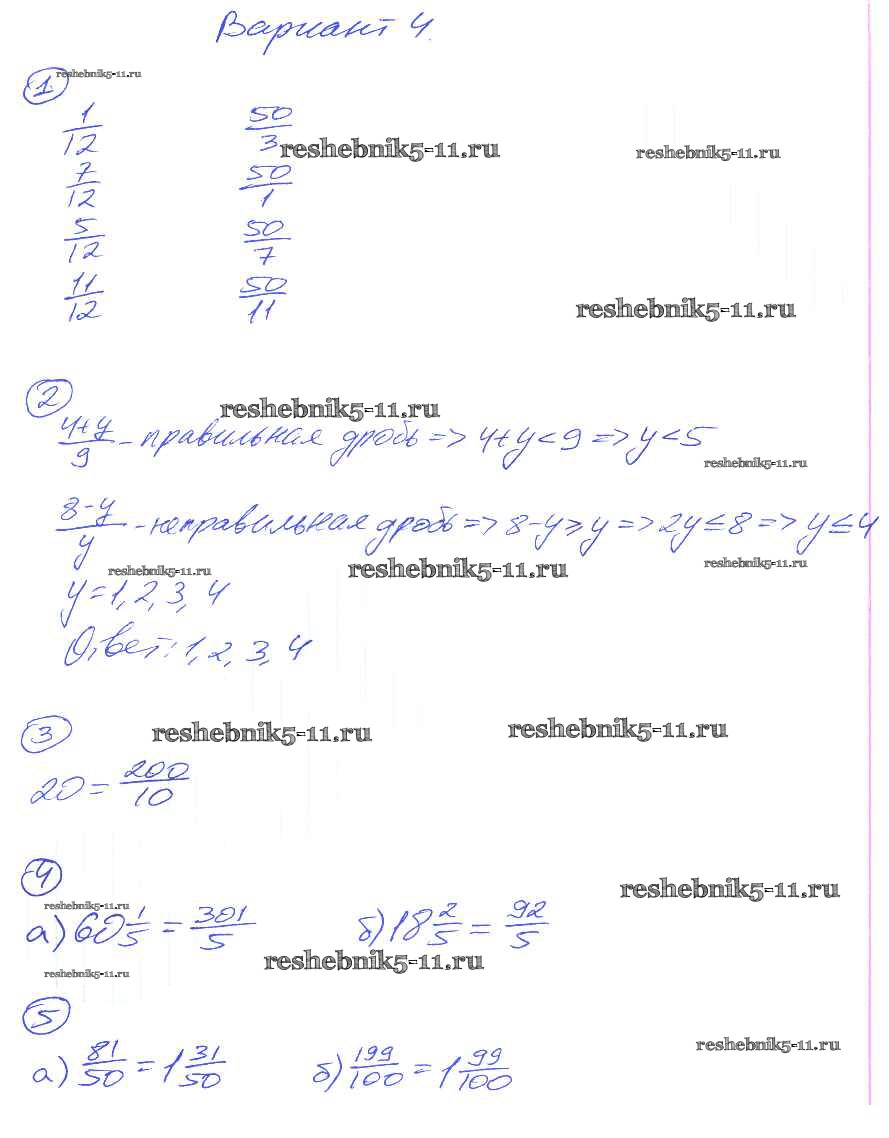 Вариант 4.
1 reshebnik5-11.ru
1/12 50/3 reshebnik5-11.ru reshebnik5-11.ru
7/12 50/1
5/12 50/7
11/12 50/11 reshebnik5-11.ru
2 reshebnik5-11.ru
4+y/9 - правильная дробь => 4+y<9 => y<5
reshebnik5-11.ru
8-y/y - неправильная дробь => 8-y⩾y => 2y≤8 => y≤4
reshebnik5-11.ru reshebnik5-11.ru reshebnik5-11.ru
y=1, 2, 3, 4
Ответ: 1, 2, 3, 4
3 reshebnik5-11.ru reshebnik5-11.ru
20 = 200/10
4 reshebnik5-11.ru
reshebnik5-11.ru
а) 60 1/5 = 301/5 б) 18 2/5 = 92/5
reshebnik5-11.ru reshebnik5-11.ru
5
а) 81/50 = 1 31/50 б) 199/100 = 1 99/100 reshebnik5-11.ru